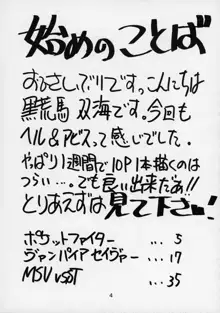 始めのことば
おひさしぶりですっこんにちは
黒荒馬 双海です。今回も
ヘル&アビスって感じでした。
やっぱり1週間で10P1本描くのは
つらい...でも良い出来だあ!!
とりあえずは見て下さい!
ポケットファイター ... 5
ヴァンパイアセイヴァー ... 17
MSV vs ST ... 35
4